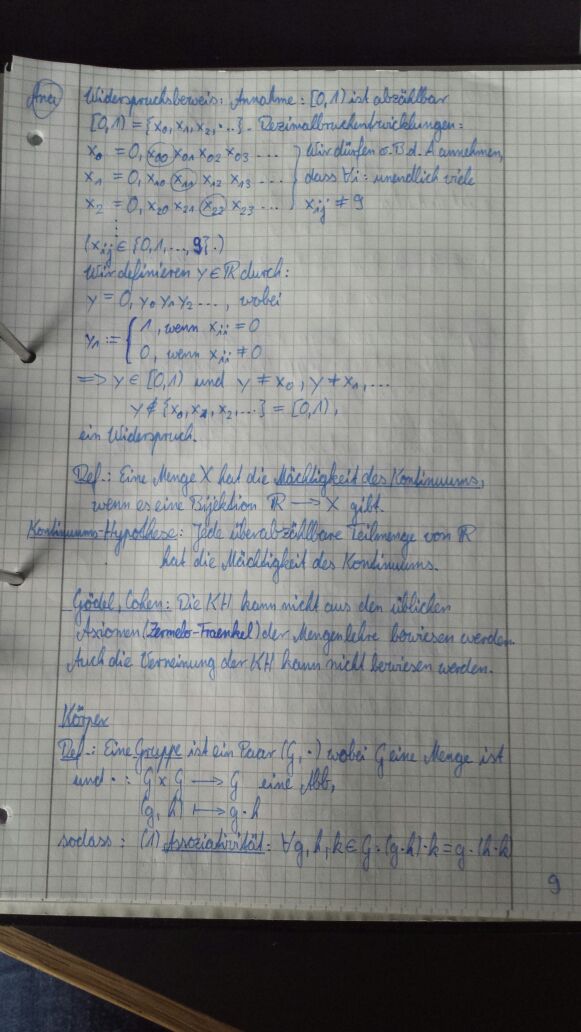 Ana
Widerspruchsbeweis: Annahme: [0,1) ist abzählbar
[0,1) = {x₀, x₁, x₂, ...}. Dezimalbruchentwicklungen:
x₀ = 0, x₀₀ x₀₁ x₀₂ x₀₃ ... } Wir dürfen o.B.d.A annehmen,
x₁ = 0, x₁₀ x₁₁ x₁₂ x₁₃ ... } dass ∀i: unendlich viele
x₂ = 0, x₂₀ x₂₁ x₂₂ x₂₃ ... } xᵢⱼ ≠ 9
⋮
(xᵢⱼ ∈ {0,1,...,9}.)
Wir definieren y ∈ ℝ durch:
y = 0, y₀ y₁ y₂ ..., wobei
y₁ := { 1, wenn xᵢᵢ = 0
0, wenn xᵢᵢ ≠ 0
=> y ∈ [0,1) und y ≠ x₀, y ≠ x₁, ...
y ∉ {x₀, x₁, x₂, ...} = [0,1),
ein Widerspruch.
Def.: Eine Menge X hat die Mächtigkeit des Kontinuums,
wenn es eine Bijektion ℝ → X gibt.
Kontinuums-Hypothese: Jede überabzählbare Teilmenge von ℝ
hat die Mächtigkeit des Kontinuums.
Gödel, Cohen: Die KH kann nicht aus den üblichen
Axiomen (Zermelo-Fraenkel) der Mengenlehre bewiesen werden.
Auch die Verneinung der KH kann nicht bewiesen werden.
Körper
Def.: Eine Gruppe ist ein Paar (G, ·) wobei G eine Menge ist
und · : G × G → G eine Abb,
(g, h) ↦ g·h
sodass: (1) Assoziativität: ∀g, h, k ∈ G: (g·h)·k = g·(h·k)
9